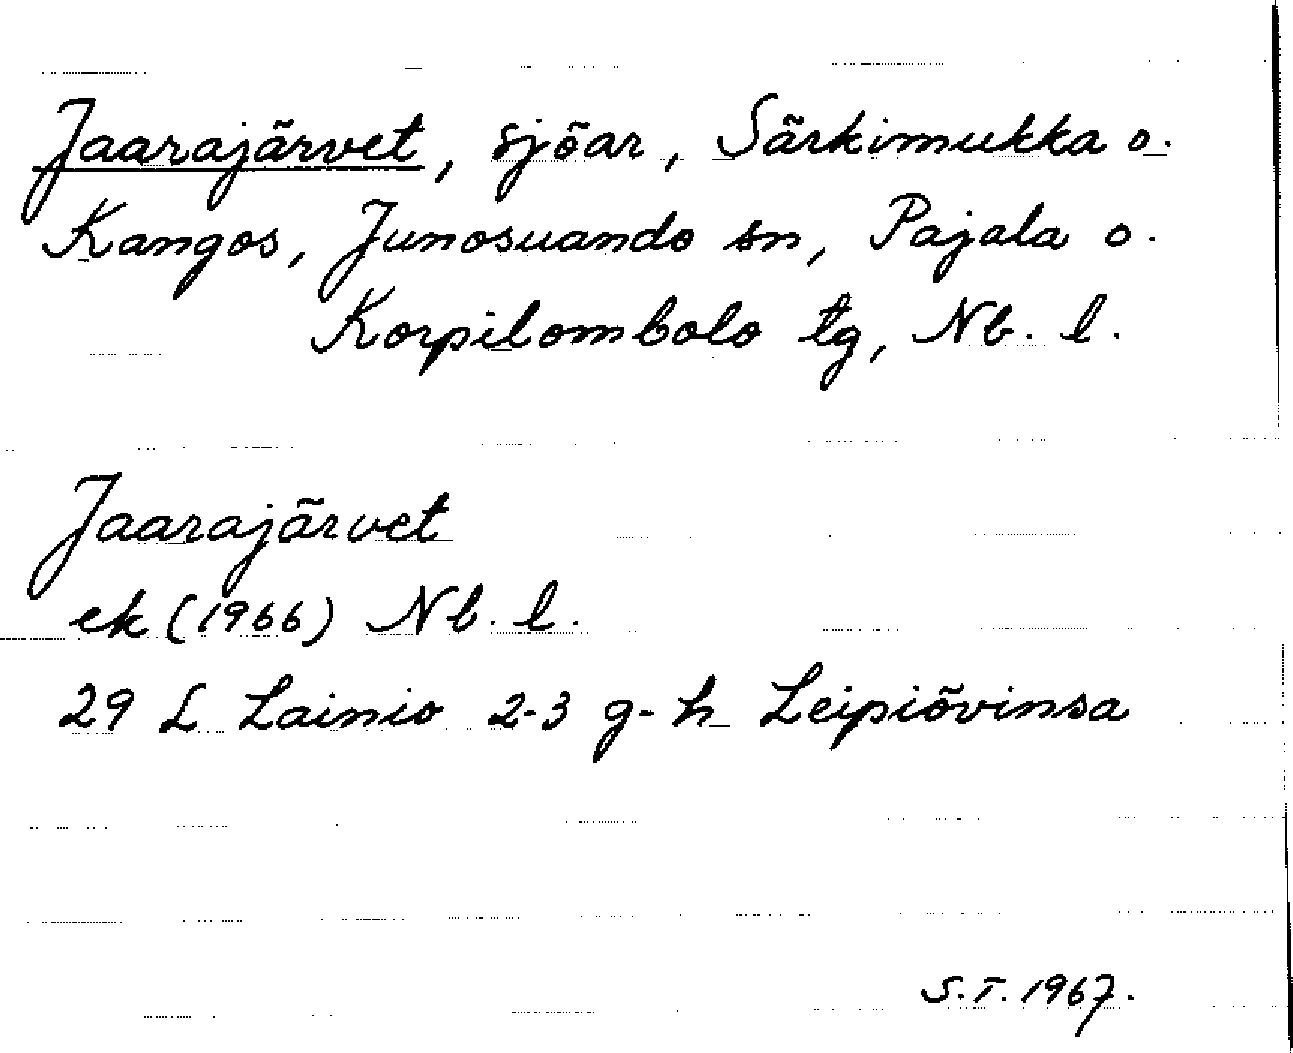 Jaarajärvet, sjöar, Särkimukka o.
Kangos, Junosuando sn, Pajala o.
Korpilombolo tg, Nb. l.
Jaarajärvet
ek (1966) Nb. l.
29 L Lainio 2-3 g-h Leipiövinsa
S.T. 1967.